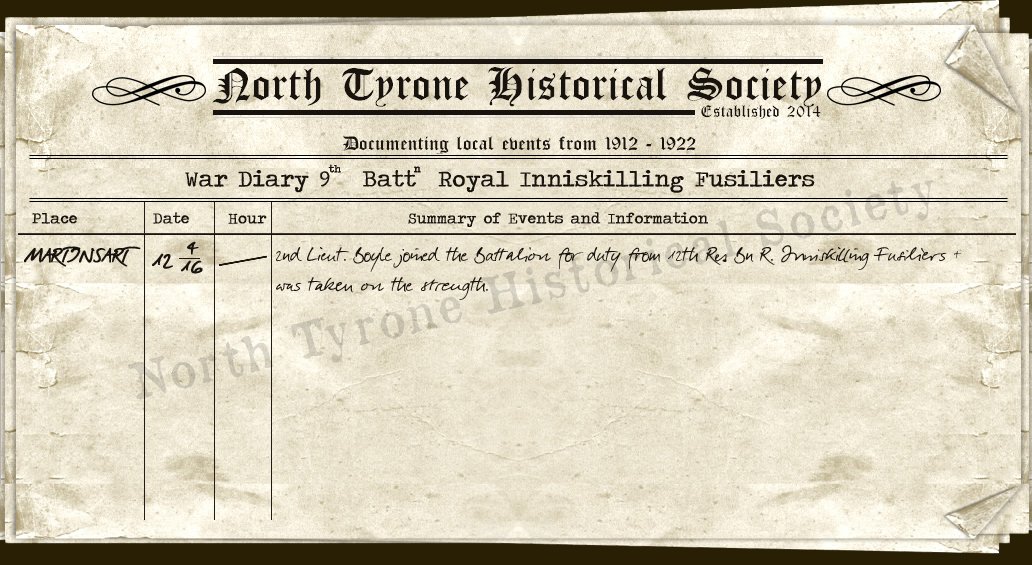 North Tyrone Historical Society
Established 2014
Documenting local events from 1912 - 1922
War Diary 9th Battn Royal Inniskilling Fusiliers
Place Date Hour Summary of Events and Information
MARTINSART 12 4/16 — 2nd Lieut. Boyle joined the Battalion for duty from 12th Res Bn R. Inniskilling Fusiliers +
was taken on the strength.
North Tyrone Historical Society